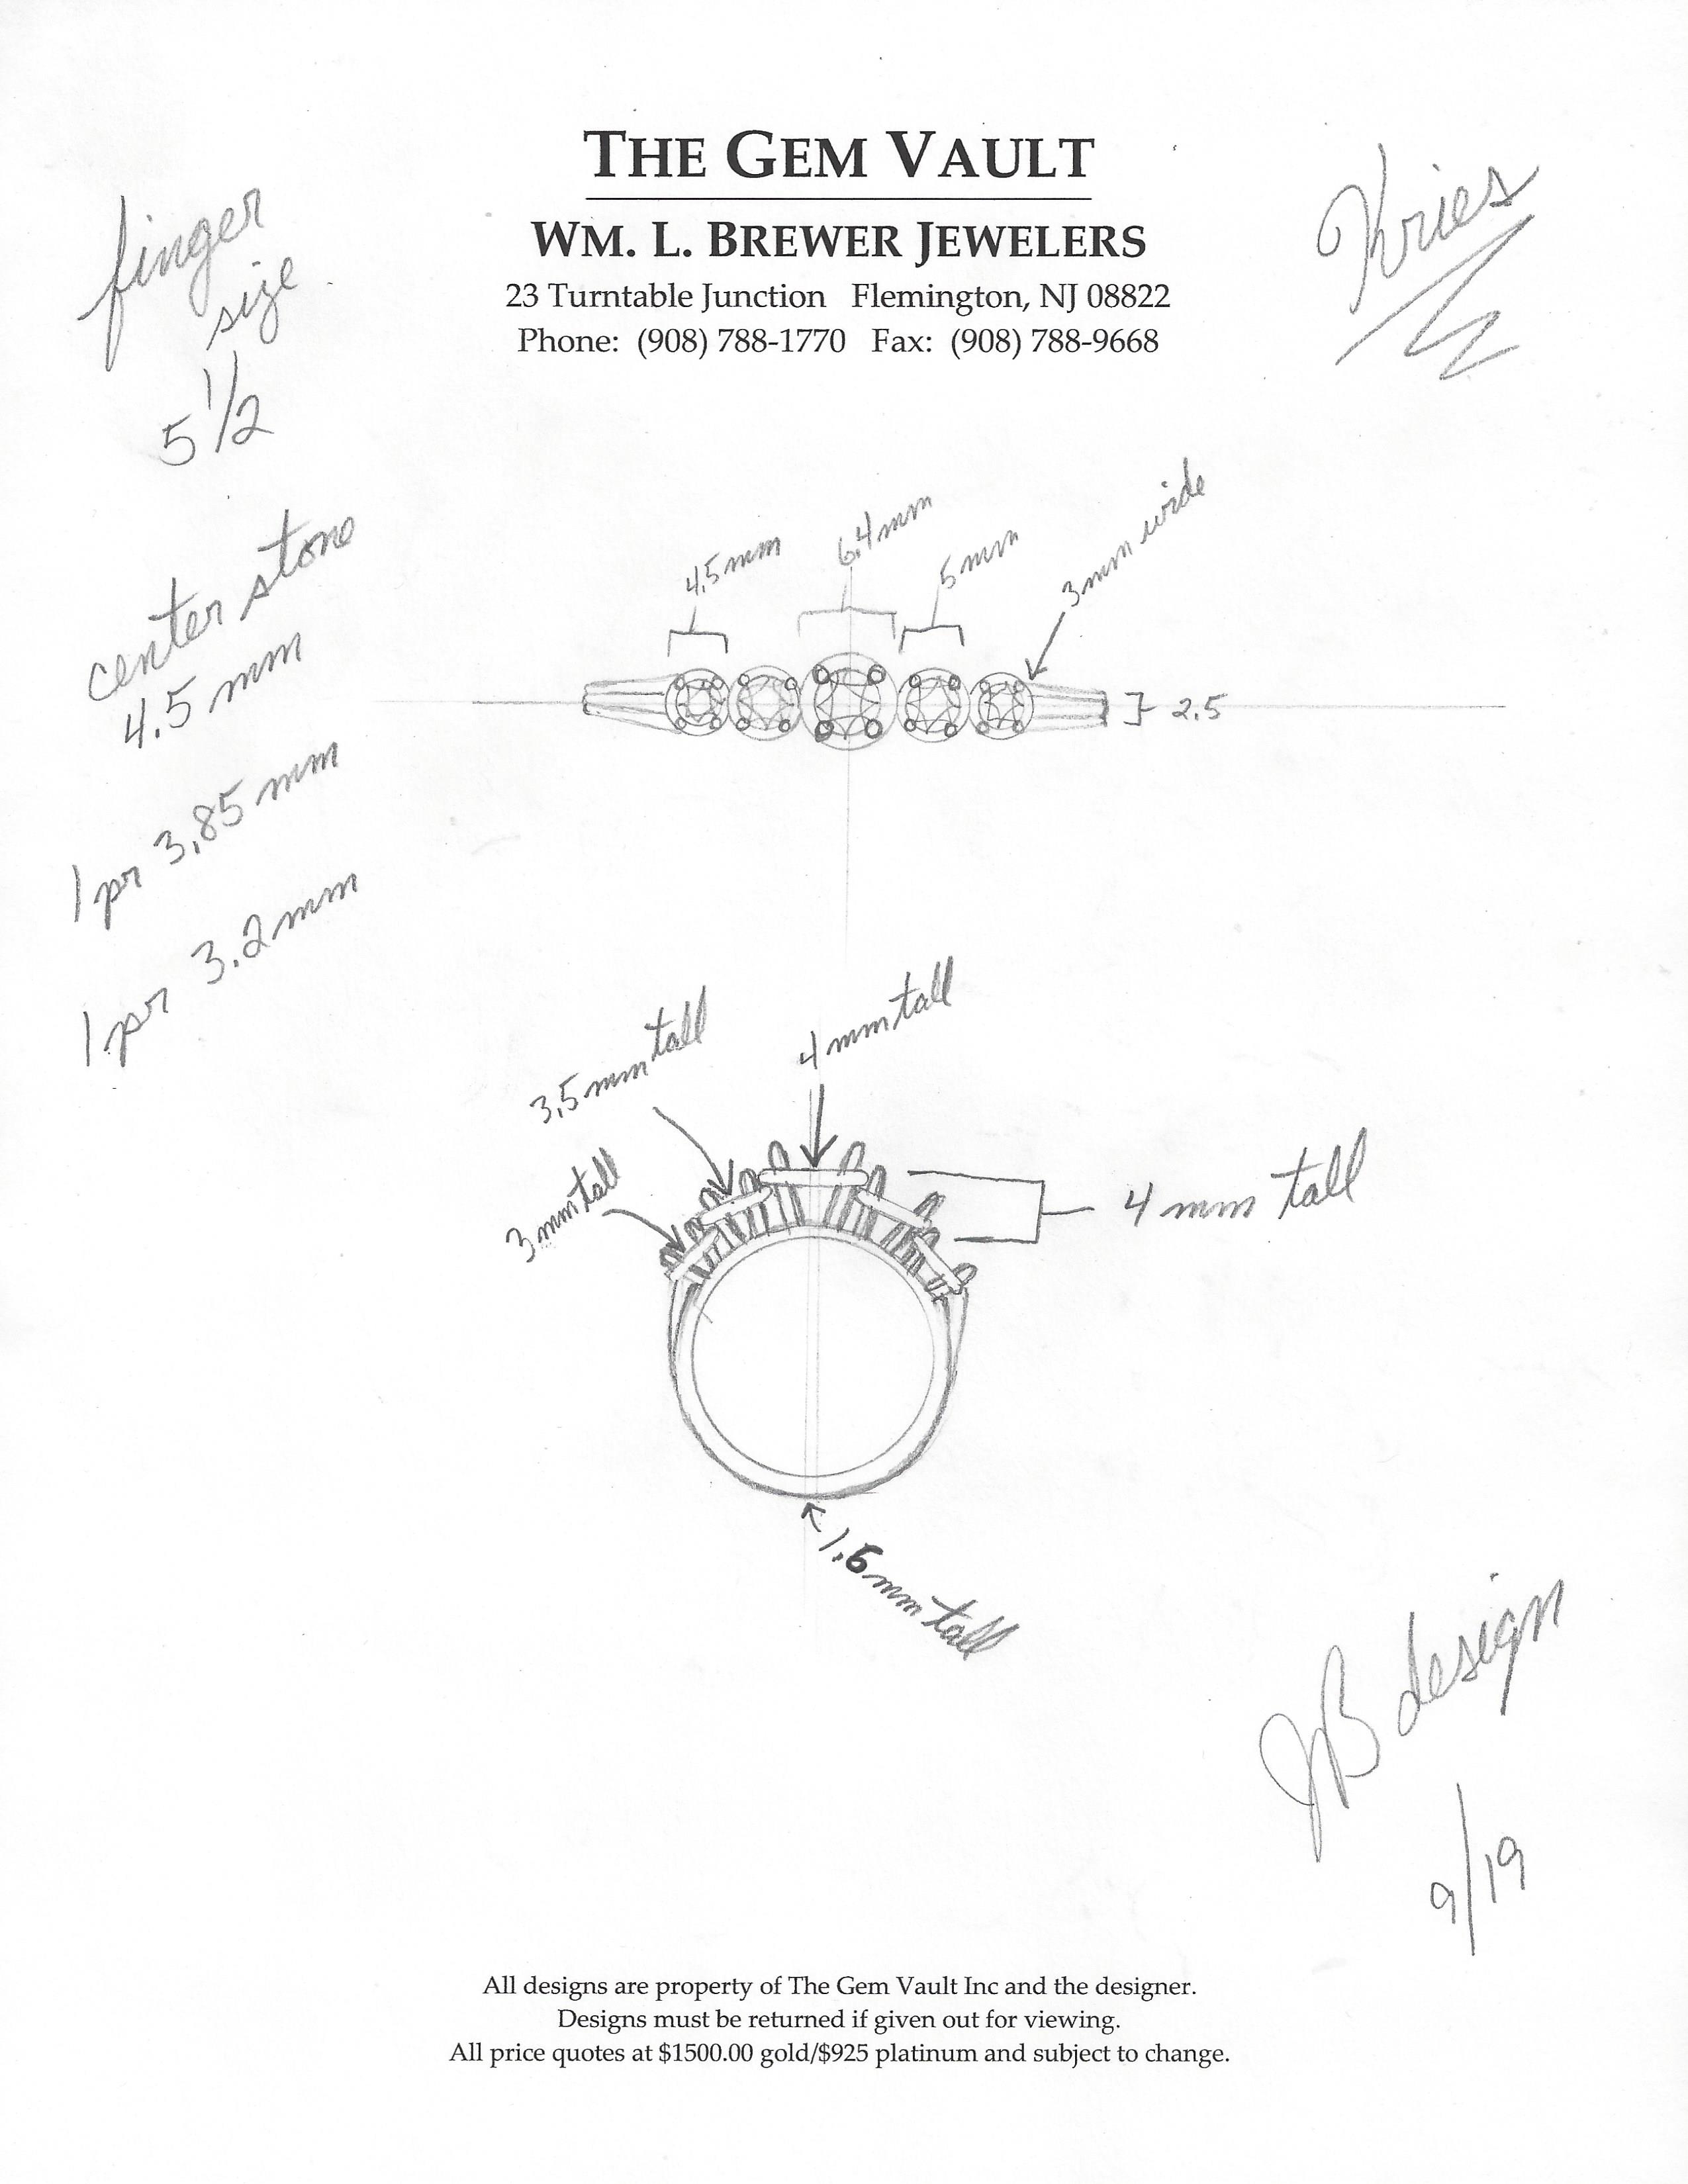 THE GEM VAULT
WM. L. BREWER JEWELERS
23 Turntable Junction Flemington, NJ 08822
Phone: (908) 788-1770 Fax: (908) 788-9668
Kries
finger
size
5 1/2
center stone
4.5 mm
1 pr 3.85 mm
1 pr 3.2 mm
4.5 mm
6.4 mm
5 mm
3 mm wide
2.5
3.5 mm tall
4 mm tall
3 mm tall
4 mm tall
1.6 mm tall
JB design
9/19
All designs are property of The Gem Vault Inc and the designer.
Designs must be returned if given out for viewing.
All price quotes at $1500.00 gold/$925 platinum and subject to change.